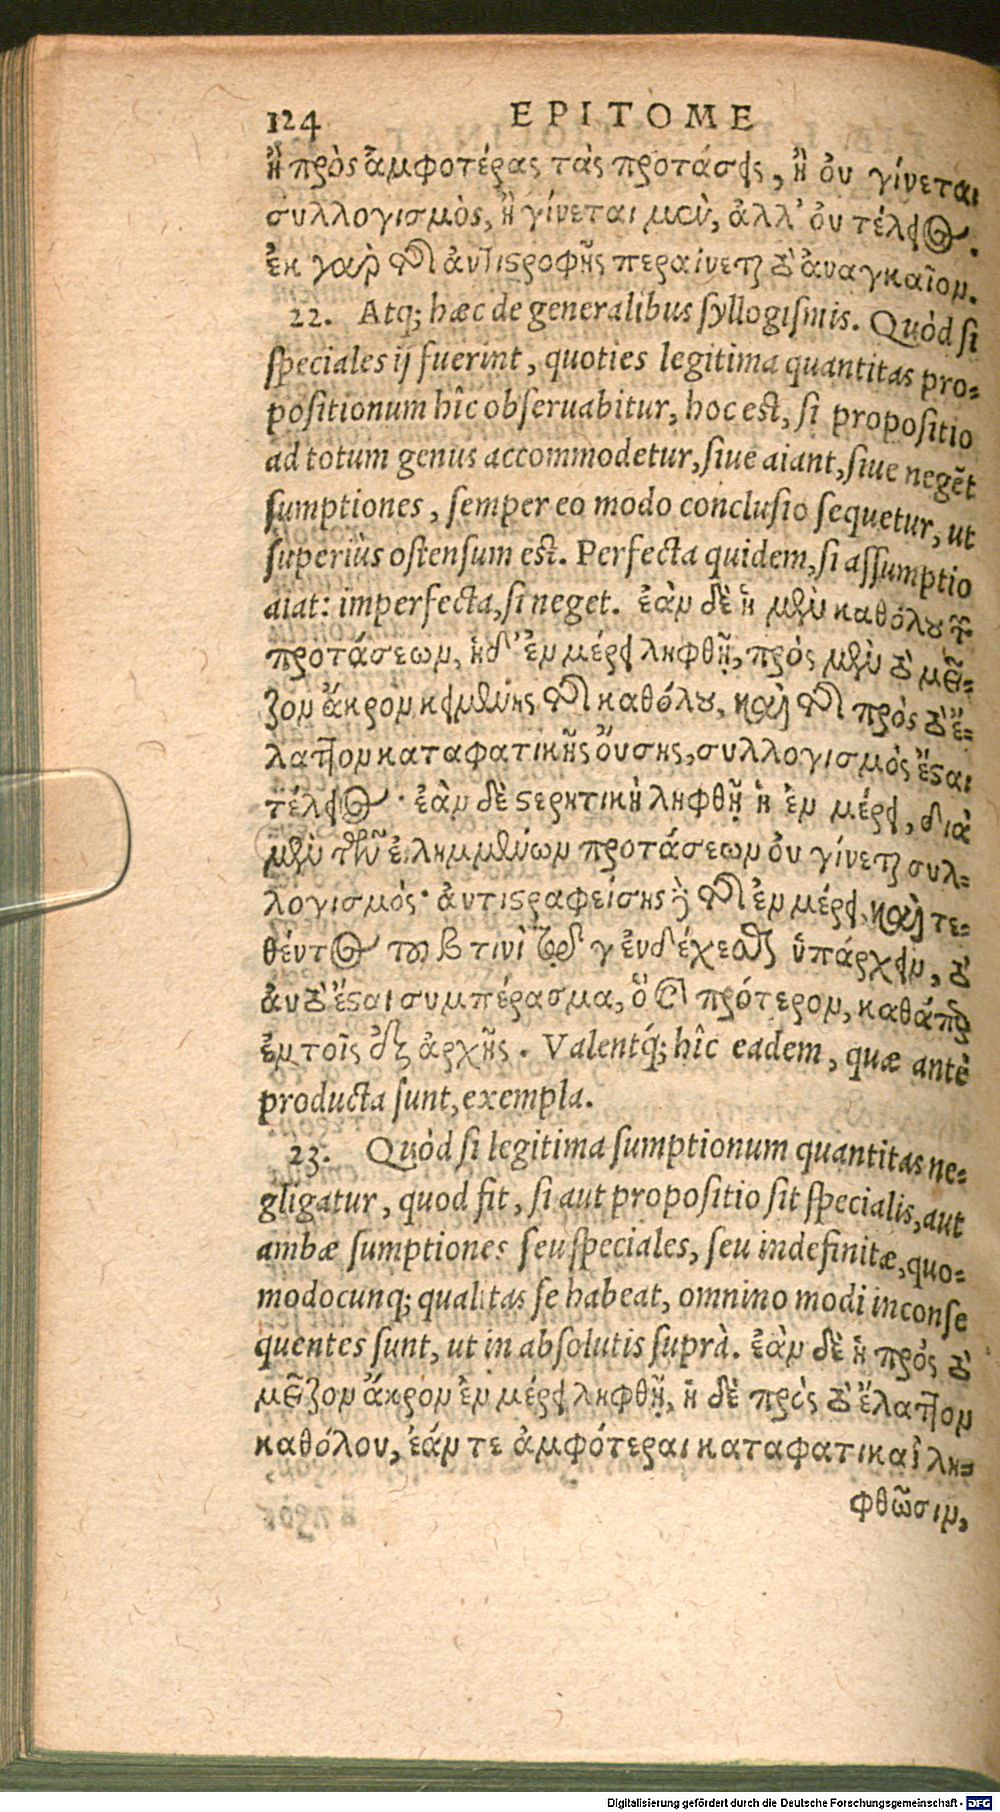 124 EPITOME
ἢ πρὸς ἀμφοτέρας τὰς προτάσεις, ἢ οὐ γίνεται
συλλογισμὸς, ἢ γίνεται μὲν, ἀλλ' οὐ τέλειος.
ἐκ γὰρ τῆς ἀντιστροφῆς περαίνεται τὸ ἀναγκαῖον.
22. Atq; hæc de generalibus syllogismis. Quòd si
speciales ij fuerint, quoties legitima quantitas pro-
positionum hîc obseruabitur, hoc est, si propositio
ad totum genus accommodetur, siue aiant, siue negēt
sumptiones, semper eo modo conclusio sequetur, ut
superiùs ostensum est. Perfecta quidem, si assumptio
aiat: imperfecta, si neget. ἐὰν δὲ ἡ μὲν καθόλου τῶν
προτάσεων, ἡ δ' ἐν μέρει ληφθῇ, πρὸς μὲν τὸ μεῖ-
ζον ἄκρον κειμένης τῆς καθόλου, καὶ τῆς πρὸς τὸ ἔ-
λαττον καταφατικῆς οὔσης, συλλογισμὸς ἔσται
τέλειος· ἐὰν δὲ στερητικὴ ληφθῇ ἡ ἐν μέρει, διὰ
μὲν τῶν εἰλημμένων προτάσεων οὐ γίνεται συλ-
λογισμός· ἀντιστραφείσης δὲ τῆς ἐν μέρει, καὶ τε-
θέντος τοῦ β τινὶ τῶν γ ἐνδέχεσθαι ὑπάρχειν, τὸ
ἀυτὸ ἔσται συμπέρασμα, ὃ καὶ πρότερον, καθάπερ
ἐν τοῖς ἐξ ἀρχῆς. Valentq́; hîc eadem, quæ antè
producta sunt, exempla.
23. Quòd si legitima sumptionum quantitas ne-
gligatur, quod fit, si aut propositio sit specialis, aut
ambæ sumptiones seu speciales, seu indefinitæ, quo-
modocunq; qualitas se habeat, omnino modi inconse
quentes sunt, ut in absolutis suprà. ἐὰν δὲ ἡ πρὸς τὸ
μεῖζον ἄκρον ἐν μέρει ληφθῇ, ἡ δὲ πρὸς τὸ ἔλαττον
καθόλου, ἐάν τε ἀμφότεραι καταφατικαὶ λη-
φθῶσιν,
Digitalisierung gefördert durch die Deutsche Forschungsgemeinschaft - DFG